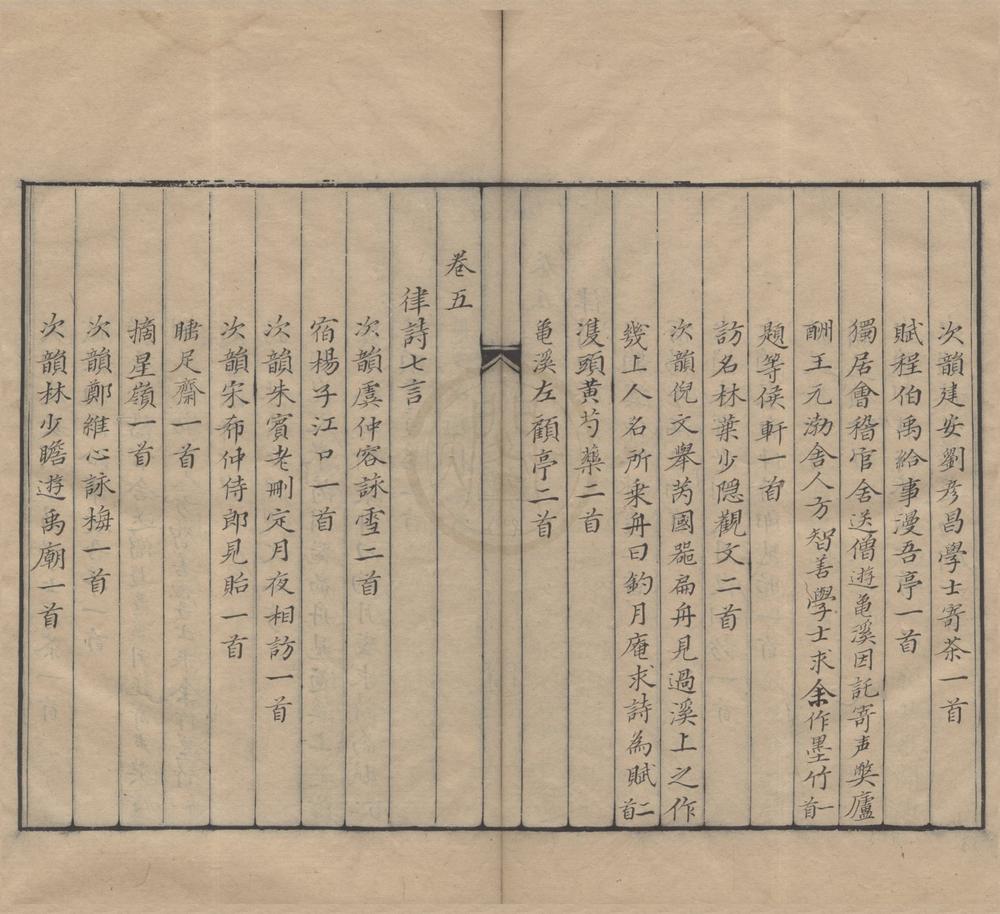 次韻建安劉彥昌學士寄茶一首
賦程伯禹給事漫吾亭一首
獨居會稽官舍送僧遊龜溪因託寄声獘廬
酬王元渤舍人方智善學士求余作墨竹一首
題等侯軒一首
訪名林葉少隠觀文二首
次韻倪文舉芮國噐扁舟見過溪上之作
幾上人名所乗舟曰釣月庵求詩為賦二首
䨇頭黄芍藥二首
亀溪左顧亭二首
巻五
律詩七言
次韻虞仲容詠雪二首
宿楊子江口一首
次韻朱賓老刪定月夜相訪一首
次韻宋布仲侍郎見貽一首
睡足齋一首
摘星嶺一首
次韻鄭維心詠梅一首
次韻林少瞻遊禹廟一首